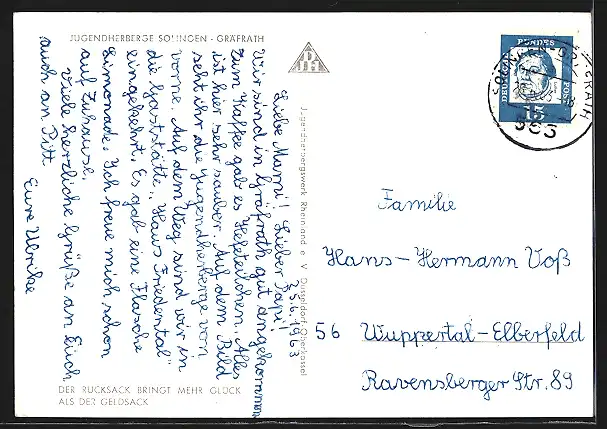 JUGENDHERBERGE SOLINGEN - GRÄFRATH
23.6.1963
Liebe Mummi! Lieber Papi!
Wir sind in Gräfrath gut angekommen.
Zum Kaffee gab es Hefeteilchen. Alles
ist hier sehr sauber. Auf dem Bild
seht ihr die Jugendherberge von
vorne. Auf dem Weg sind wir in
die Gaststätte „Haus Friedental
eingekehrt. Es gab eine Flasche
Limonade. Ich freue mich schon
auf Zuhause.
Viele herzliche Grüße an Euch
auch an Pitt
Eure Ulrike
DER RUCKSACK BRINGT MEHR GLÜCK
ALS DER GELDSACK
Jugendherbergswerk Rheinland e. V. Düsseldorf-Oberkassel
DEUTSCHE
BUNDES
POST
15
SOLINGEN-GRÄFRATH
Familie
Hans-Hermann Voß
56 Wuppertal-Elberfeld
Ravensberger Str. 89